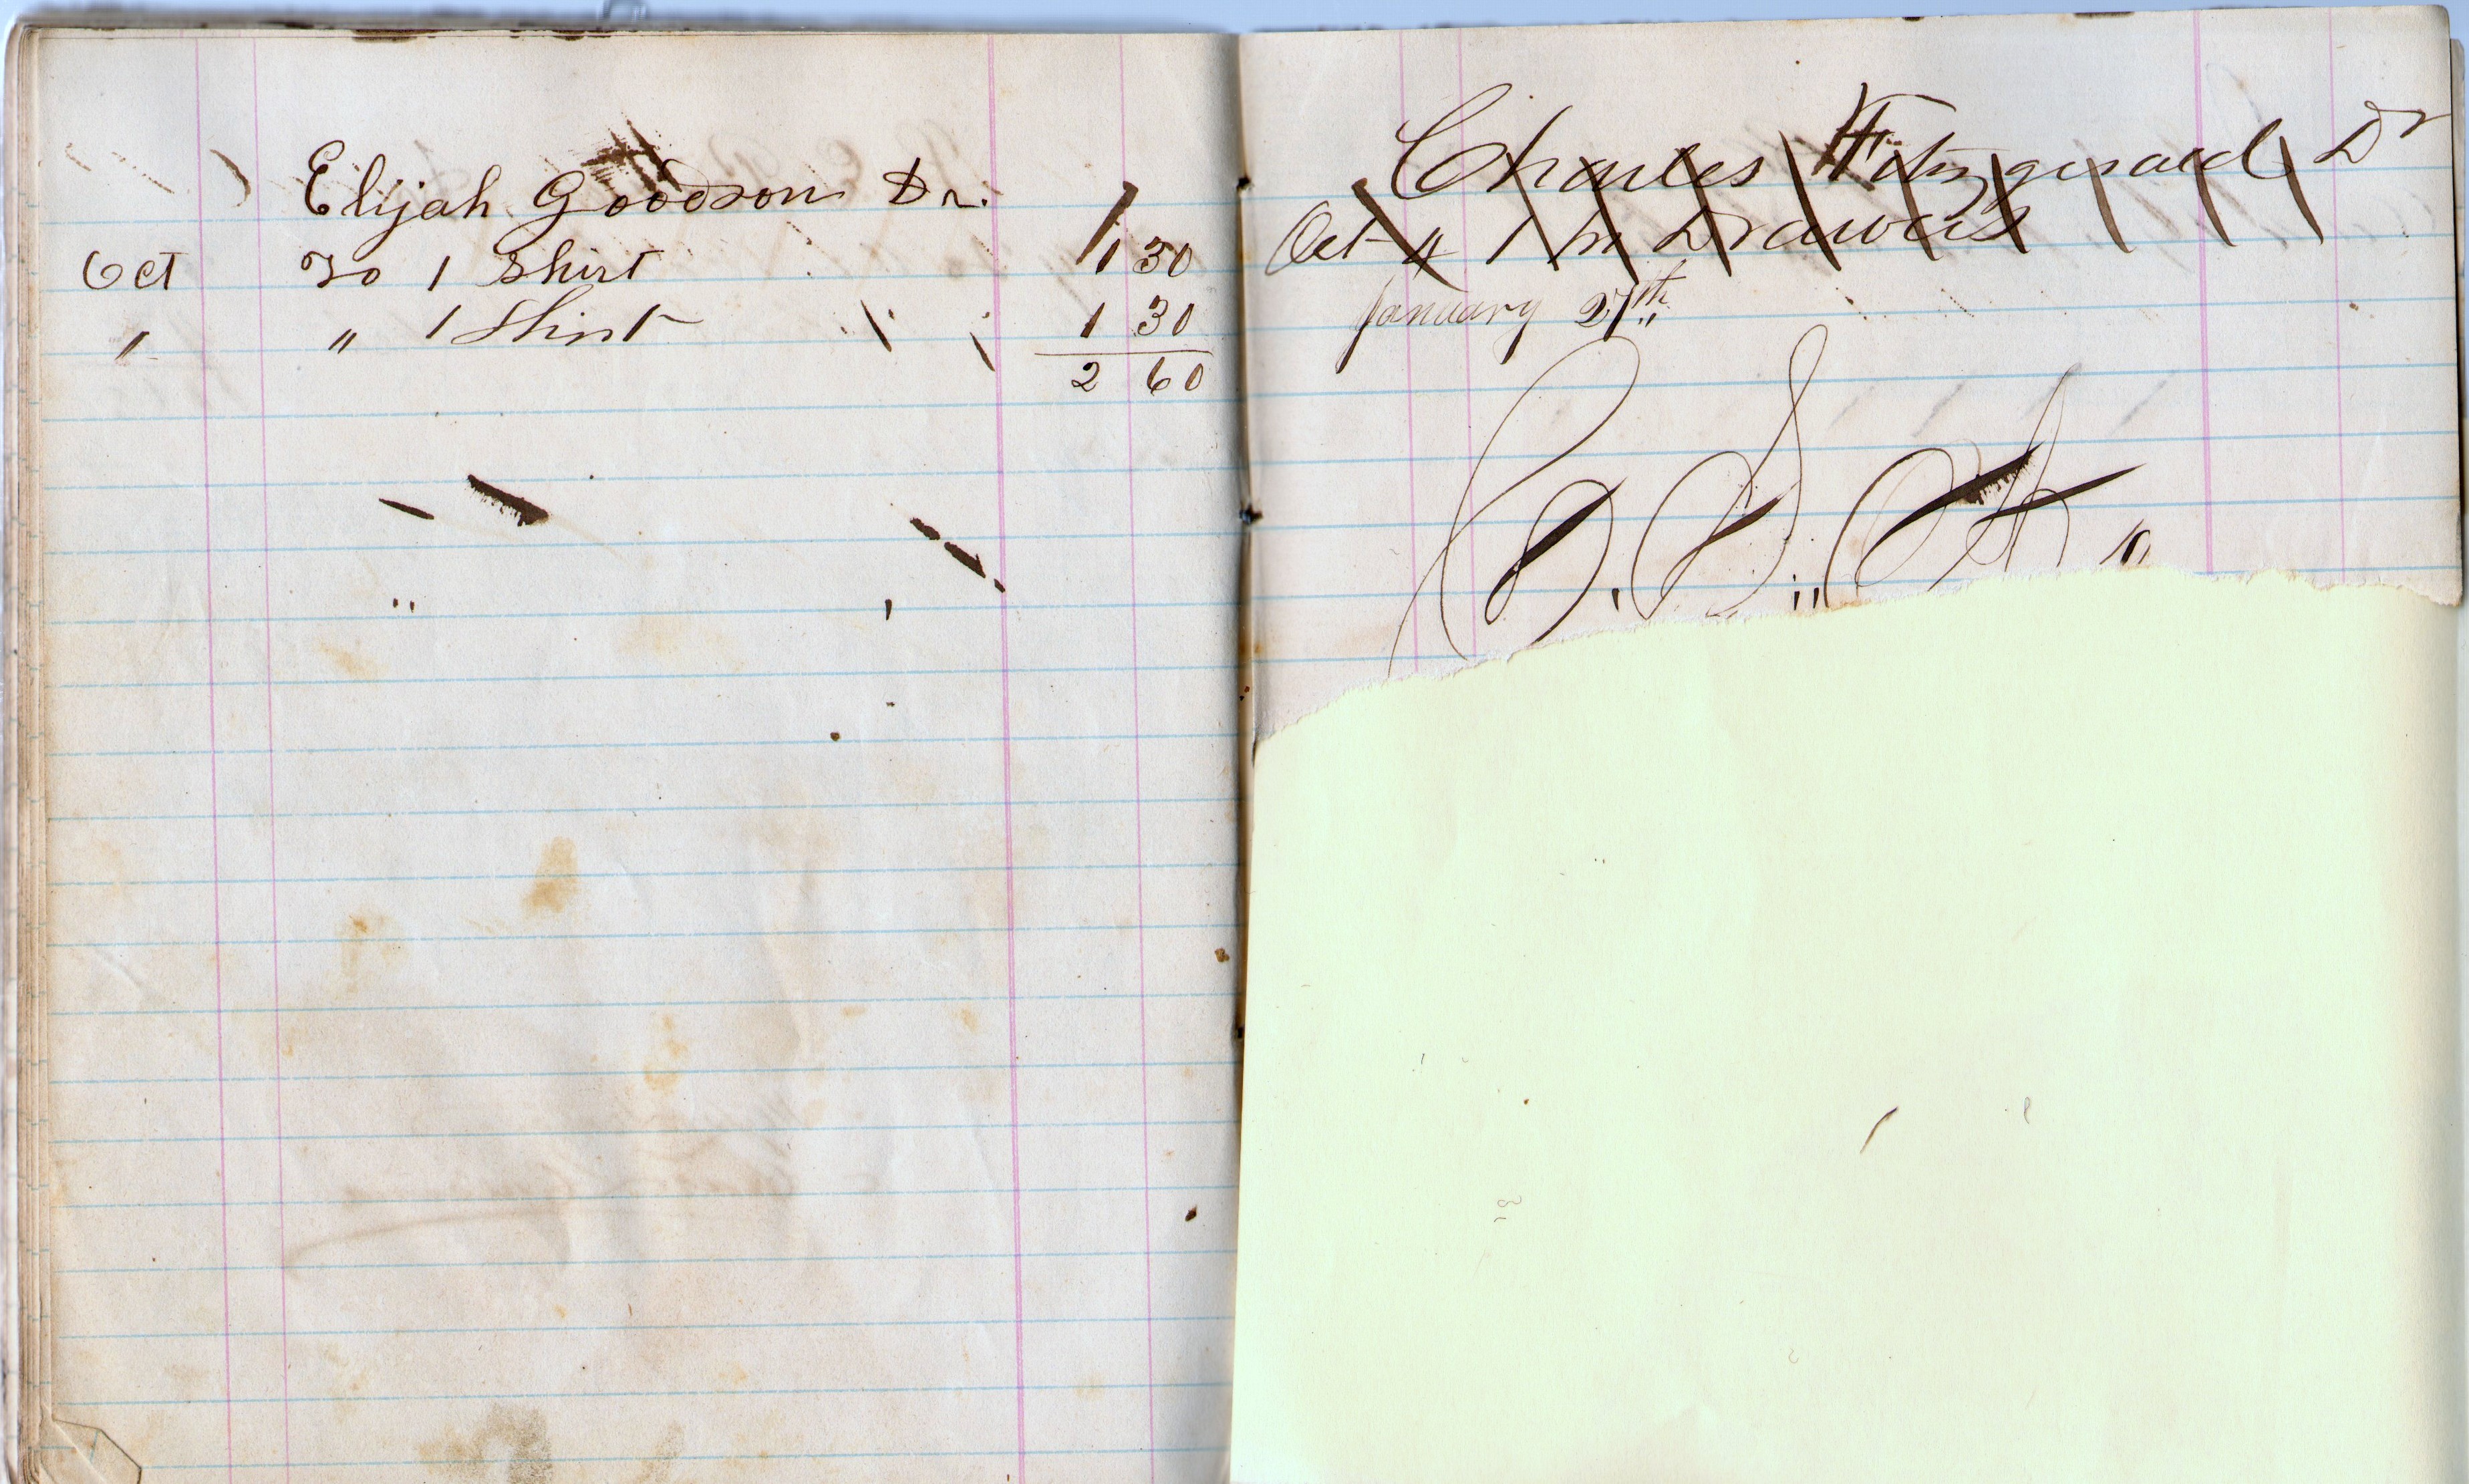 Elijah Goodson Dr.
Oct To 1 Shirt 1 30
" " 1 Shirt 1 30
2 60
Charles Fitzgerald Dr
Oct " 1 Pr Drawers
January 27th